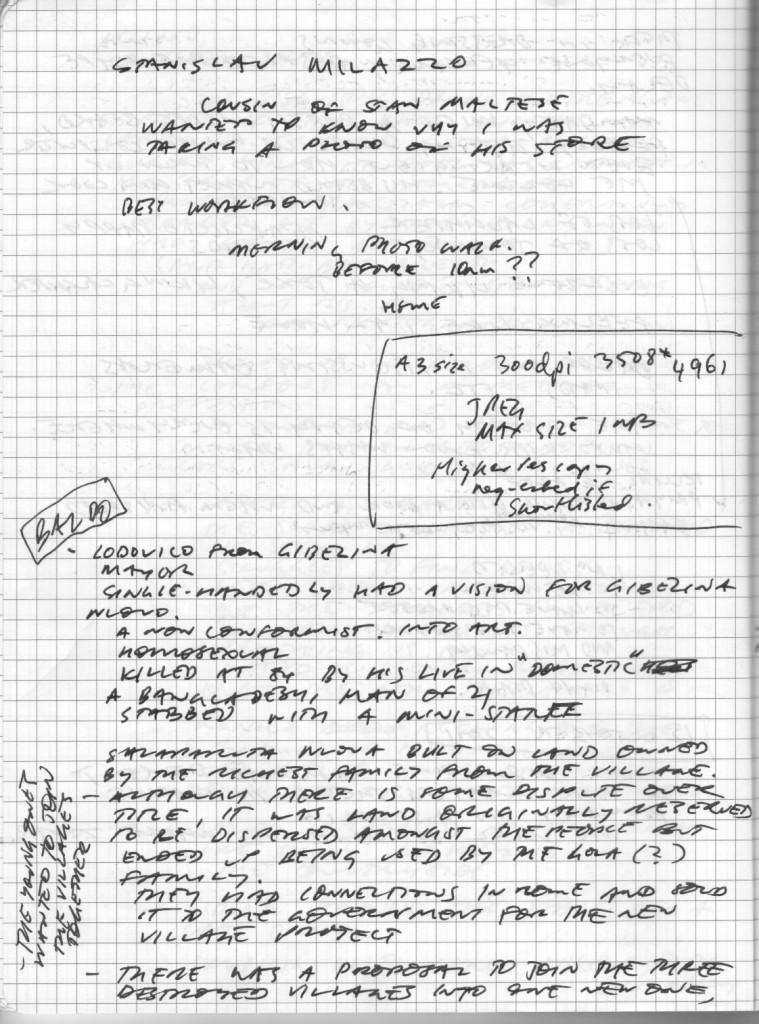 STANISLAV MILAZZO
COUSIN OF STAN MALTESE
WANTED TO KNOW WHY I WAS
TAKING A PHOTO OF HIS STORE
BEST WORKFLOW.
MORNING PHOTO WALK.
BEFORE 10am ??
HOME
A3 size 300dpi 3508*4961
JPEG
MAX SIZE 1 MB
Higher res copy
requested if
shortlisted.
BALDO
- LODOVICO FROM GIBELINA
MAYOR
SINGLE-HANDEDLY HAD A VISION FOR GIBELINA
NUOVO.
A NON CONFORMIST. INTO ART.
HOMOSEXUAL
KILLED AT 84 BY HIS LIVE IN "DOMESTIC"
A BANGLADESHI, MAN OF 21
STABBED WITH A MINI-
SALAPARUTA NUOVA BUILT ON LAND OWNED
BY THE RICHEST FAMILY FROM THE VILLAGE.
- ALTHOUGH THERE IS SOME DISPUTE OVER
TITLE, IT WAS LAND ORIGINALLY RESERVED
TO BE DISPERSED AMONGST THE PEOPLE BUT
ENDED UP BEING USED BY THE (?)
FAMILY.
THEY HAD CONNECTIONS IN ROME AND SOLD
IT TO THE GOVERNMENT FOR THE NEW
VILLAGE PROJECT
- THERE WAS A PROPOSAL TO JOIN THE THREE
DESTROYED VILLAGES INTO ONE NEW ONE,
- THE YOUNG ONES
WANTED TO JOIN
THE VILLAGES
TOGETHER